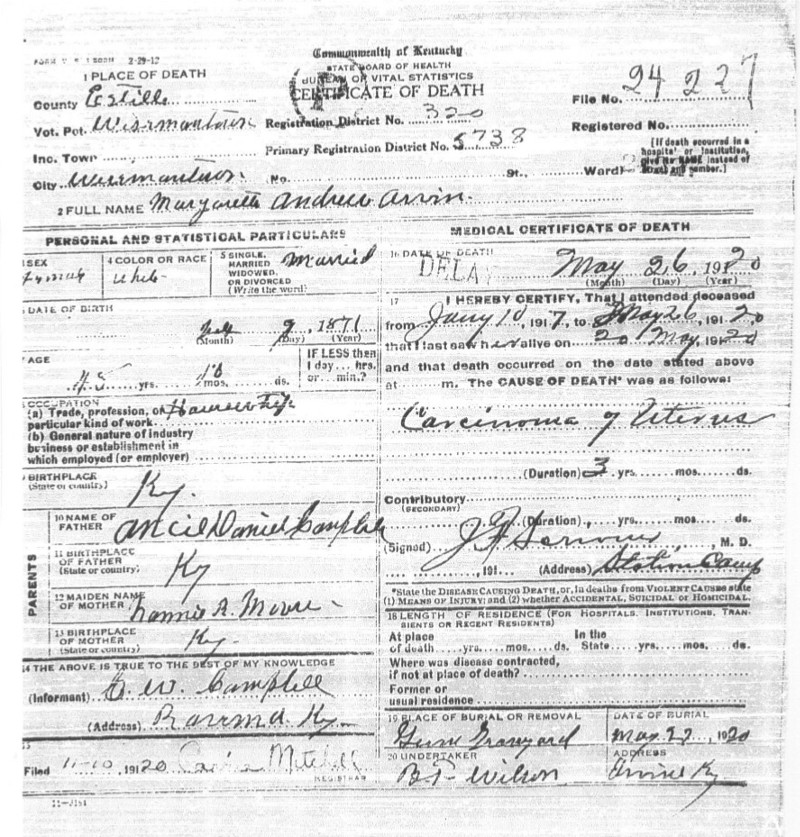 FORM V. S. 1 500M 2-29-12
Commonwealth of Kentucky
STATE BOARD OF HEALTH
BUREAU OF VITAL STATISTICS
CERTIFICATE OF DEATH
1 PLACE OF DEATH
County Estill
Vot. Pct. Wisemantown
Inc. Town
City Wisemantown No. St., Ward
Registration District No. 320
Primary Registration District No. 5738
File No. 24227
Registered No.
[If death occurred in a
hospital or institution,
give its NAME instead of
street and number.]
2 FULL NAME Margarett Andrew Arvin.
PERSONAL AND STATISTICAL PARTICULARS
SEX
Female
4 COLOR OR RACE
White
5 SINGLE,
MARRIED
WIDOWED,
OR DIVORCED
(Write the word)
Married
DATE OF BIRTH
9, 1871
(Month) (Day) (Year)
AGE
yrs. mos. ds.
IF LESS then
1 day... hrs.
or... min.?
OCCUPATION
(a) Trade, profession, or
particular kind of work Housewife
(b) General nature of industry
business or establishment in
which employed (or employer)
9 BIRTHPLACE
(State or country)
Ky.
PARENTS
10 NAME OF
FATHER
Ancil Daniel Campbell
11 BIRTHPLACE
OF FATHER
(State or country)
Ky
12 MAIDEN NAME
OF MOTHER
A. Moore
13 BIRTHPLACE
OF MOTHER
(State or country)
Ky
14 THE ABOVE IS TRUE TO THE BEST OF MY KNOWLEDGE
(Informant) W. Campbell
(Address) Ravenna Ky
15
Filed 11-10, 19120 Mitchell
REGISTRAR
11-3184
MEDICAL CERTIFICATE OF DEATH
16 DATE OF DEATH
DELAY
May 26, 19120
(Month) (Day) (Year)
17
I HEREBY CERTIFY, That I attended deceased
from Jany 10, 1917, to May 26, 19120
that I last saw her alive on 20 May, 19120
and that death occurred on the date stated above
at m. The CAUSE OF DEATH* was as follows:
Carcinoma of Uterus
(Duration) 3 yrs. mos. ds.
Contributory
(SECONDARY)
(Duration) yrs. mos. ds.
(Signed) J. F. M. D.
191 (Address) Station Camp
*State the DISEASE CAUSING DEATH, or, in deaths from VIOLENT CAUSES state
(1) MEANS OF INJURY; and (2) whether ACCIDENTAL, SUICIDAL or HOMICIDAL.
18 LENGTH OF RESIDENCE (FOR HOSPITALS, INSTITUTIONS, TRAN-
SIENTS OR RECENT RESIDENTS)
At place In the
of death yrs. mos. ds. State yrs. mos. ds.
Where was disease contracted,
if not at place of death?
Former or
usual residence
19 PLACE OF BURIAL OR REMOVAL
Graveyard
DATE OF BURIAL
May 27, 1920
20 UNDERTAKER
Wilson
ADDRESS
Irvine Ky